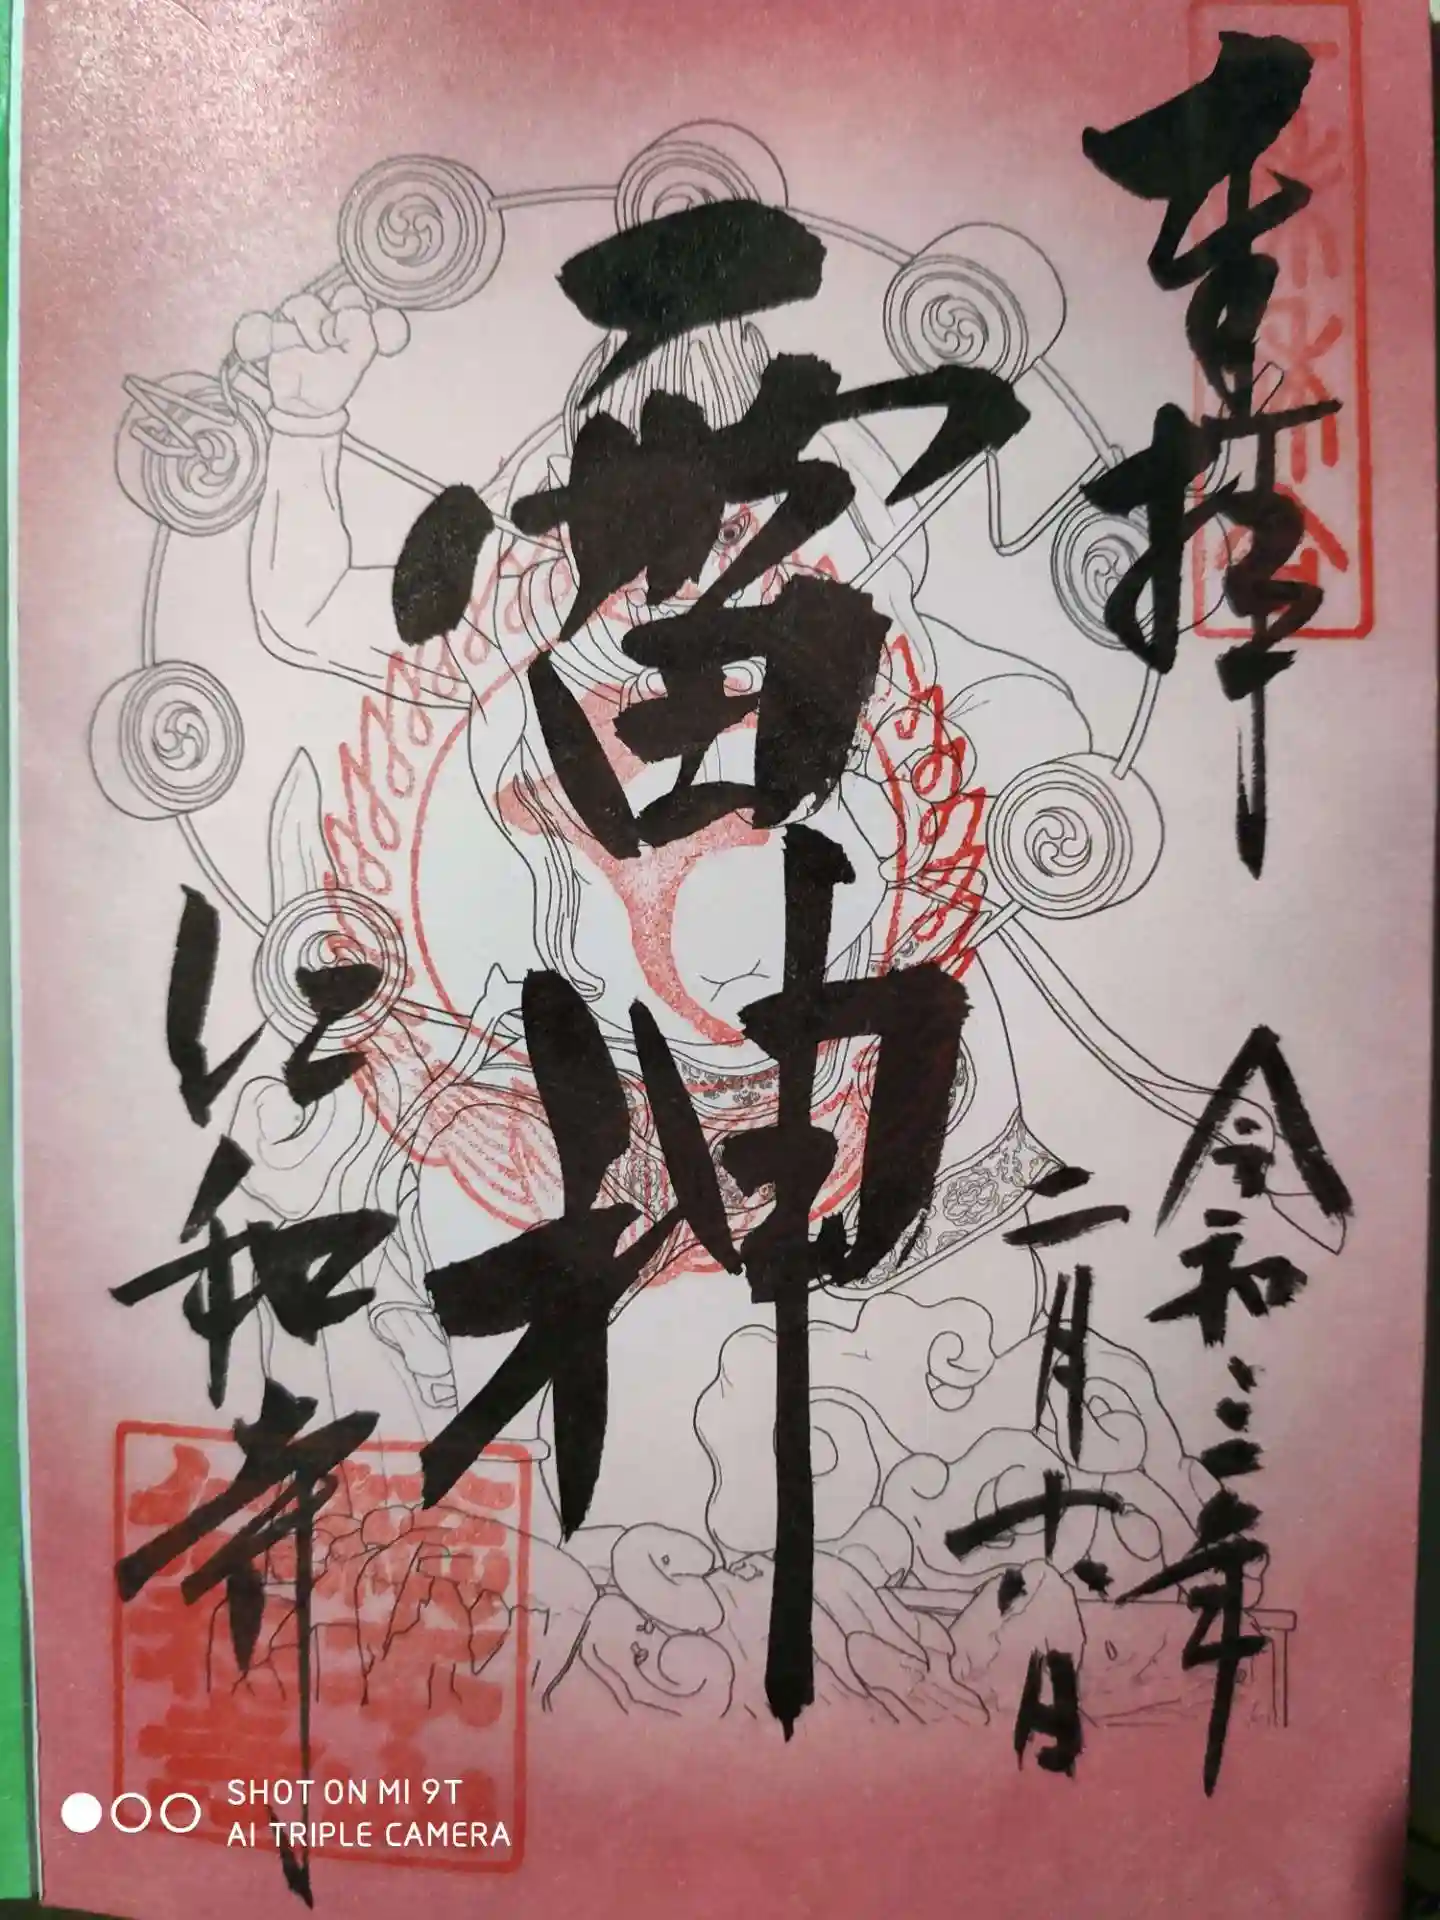 奉拝
令和三年
二月十六日
雷神
仁和寺
SHOT ON MI 9T
AI TRIPLE CAMERA